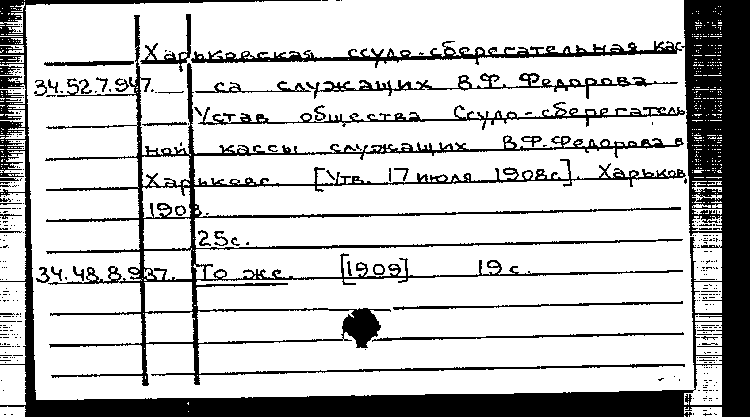 Харьковская ссудо-сберегательная кас-
34.52.7.947. са служащих В.Ф. Федорова
Устав общества Ссудо-сберегатель
ной кассы служащих В.Ф.Федорова в
Харькове. [Утв. 17 июля 1908г.]. Харьков,
1908.
25с.
34.48.8.937. То же. [1909] 19 с.